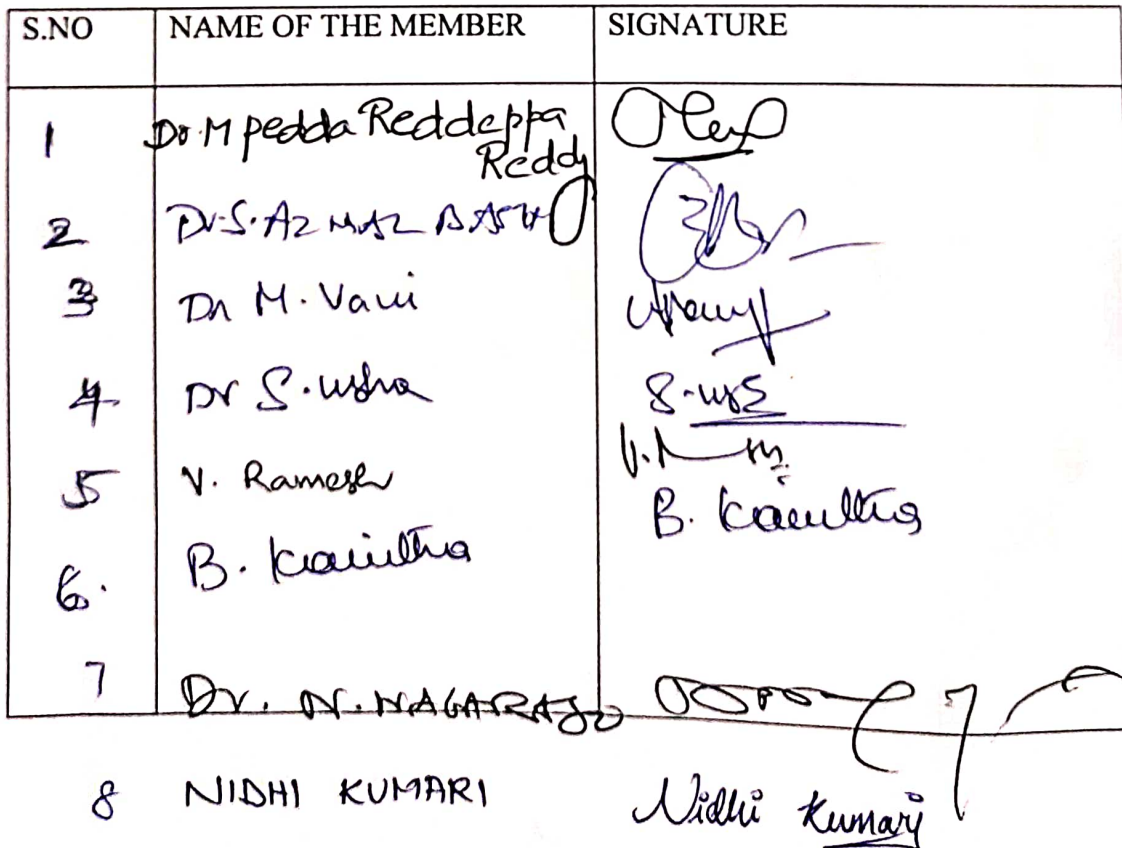 S.NO NAME OF THE MEMBER SIGNATURE
1 Dr. M pedda Reddeppa
Reddy
2 Dr. S. AZMAL BASHA
3 Dr M. Vani
4 Dr S. Usha S. Usha
5 V. Ramesh
6. B. Kavitha B. Kavitha
7 Dr. N. NAGARAJU
8 NIDHI KUMARI Nidhi Kumari